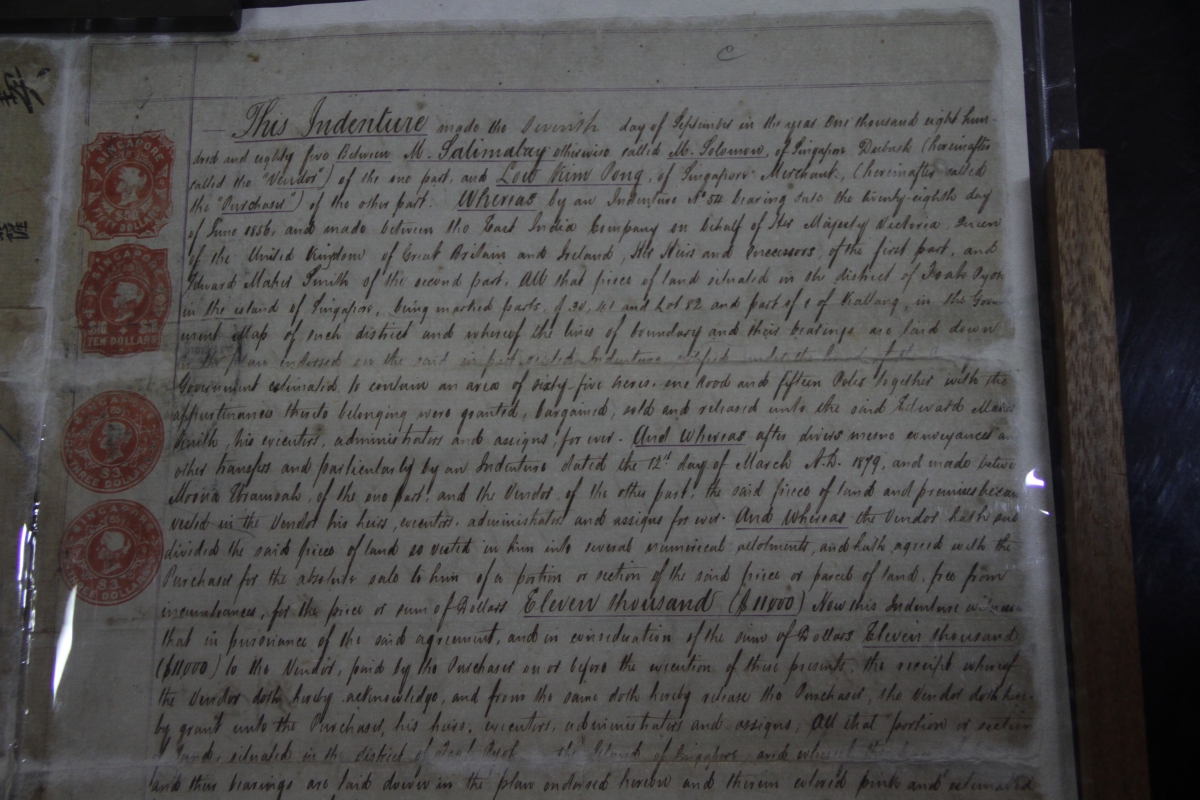 C
SINGAPORE
$30
THIRTY DOLLARS
SINGAPORE
$10 $10
TEN DOLLARS
SINGAPORE
$3
THREE DOLLARS
SINGAPORE
$3
THREE DOLLARS
This Indenture made the Seventh day of September in the year One thousand eight hun-
dred and eighty five Between M. Salimatay otherwise called M. Solomon, of Singapore (hereinafter
called the "Vendor") of the one part, and Low Kim Pong, of Singapore Merchant, (hereinafter called
the "Purchaser") of the other part. Whereas by an Indenture No. 54 bearing date the twenty-eighth day
of June 1856, and made between the East India Company on behalf of Her Majesty Victoria Queen
of the United Kingdom of Great Britain and Ireland, Her Heirs and Successors, of the first part, and
Edward Smith of the second part. All that pieces of land situated in the district of
in the island of Singapore, being marked parts, and Lot 52 and part of 1 of Kallang, in the Govern-
ment Map of such district and whereof the lines of boundary and their bearings are laid down
plan endorsed on the said Indenture
Government estimated to contain an area of sixty-five Acres. one Rood and fifteen Poles together with the
appurtenances thereto belonging were granted, bargained, sold and released unto the said Edward
Smith, his executors, administrators and assigns, for ever. And Whereas after divers mesne conveyances
other transfers and particularly by an Indenture dated the 12th day of March A.D. 1879, and made
of the one part, and the Vendor, of the other part, the said pieces of land and premises
vested in the Vendor his heirs, executors, administrators and assigns for ever. And Whereas the Vendor hath
divided the said pieces of land so vested in him into several numerical allotments, and hath agreed with the
Purchaser for the absolute sale to him of a portion or section of the said piece or parcel of land, free from
incumbrances, for the price or sum of Dollars Eleven thousand ($11000) Now this Indenture
that in pursuance of the said agreement, and in consideration of the sum of Dollars Eleven thousand
($11000) to the Vendor, paid by the Purchaser on or before the execution of these presents, the receipt whereof
the Vendor doth hereby acknowledge, and from the same doth hereby release the Purchaser, the Vendor doth here-
by grant unto the Purchaser, his heirs, executors, administrators and assigns, All that portion or section
land, situated in the district of the Island of Singapore, and
and their bearings are laid down in the plan endorsed hereon and therein colored pink and estimated